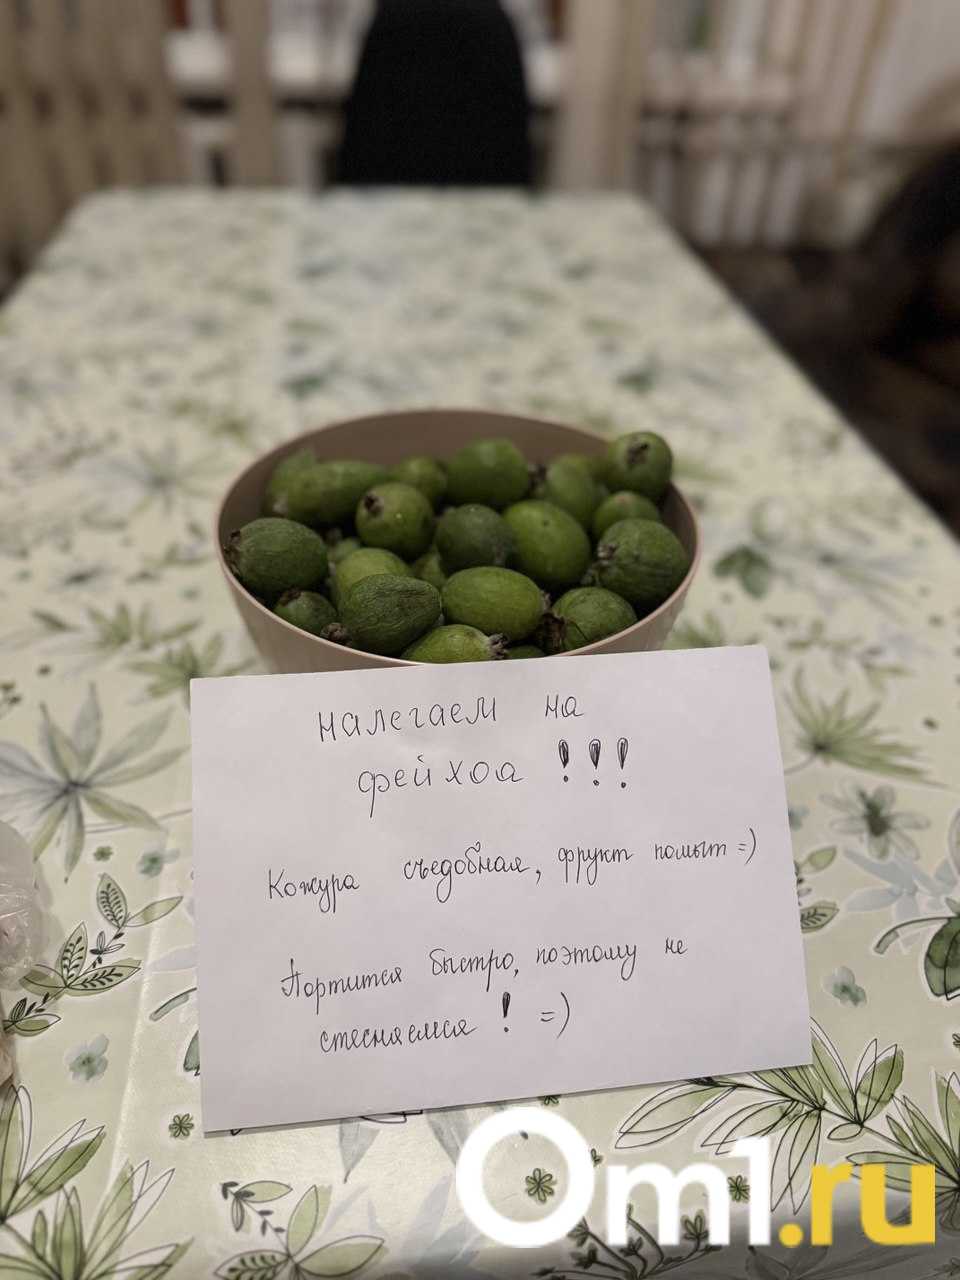 налегаем на
фейхоа !!!
Кожура съедобная, фрукт помыт =)
Портится быстро, поэтому не
стесняемся ! =)
Om1.ru